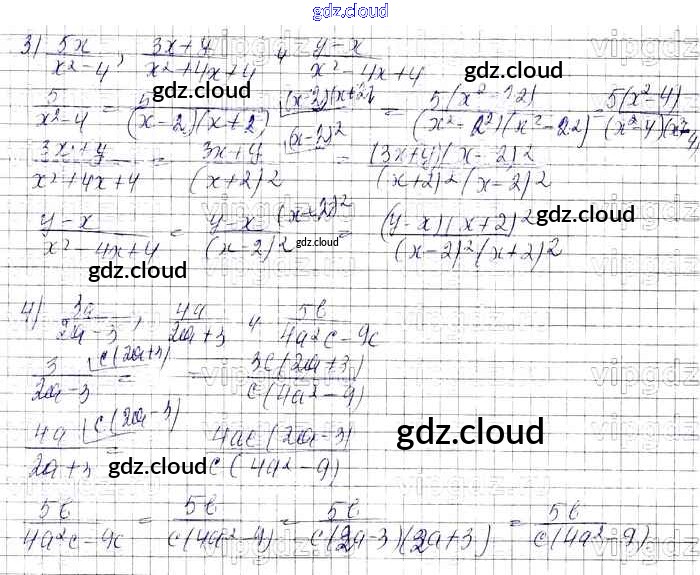 gdz.cloud
3) 5x/x²-4, 3x+4/x²+4x+4 и y-x/x²-4x+4
gdz.cloud
5/x²-4 = 5/(x-2)(x+2) = 5(x²-4)/(x²-4)
gdz.cloud
3x+y/x²+4x+4 = 3x+y/(x+2)2 = (3x+y)(x-2)2/(x+2)2(x-2)2
y-x/x²-4x+4 = y-x/(x-2)2 = (y-x)(x+2)2/(x-2)2(x+2)2
gdz.cloud gdz.cloud gdz.cloud
4) 3a/2a-3, 4a/2a+3 и 5b/4a²c-9c
3/2a-3 = = 3c(2a+3)/c(4a²-9)
4a/2a+3 = 4ac(2a-3)/c(4a²-9)
gdz.cloud gdz.cloud
5b/4a²c-9c = 5b/c(4a²-9) = 5b/c(2a-3)(2a+3) = 5b/c(4a²-9)